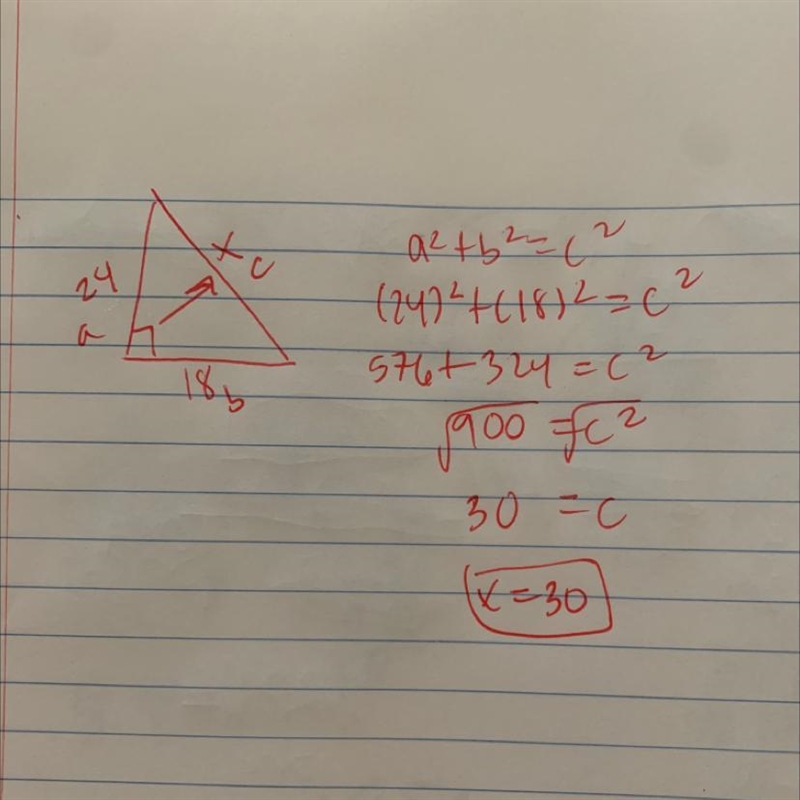 24
a
x
c
18
b
a²+b²=c²
(24)²+(18)²=c²
576+324=c²
√900=√c²
30=c
x=30